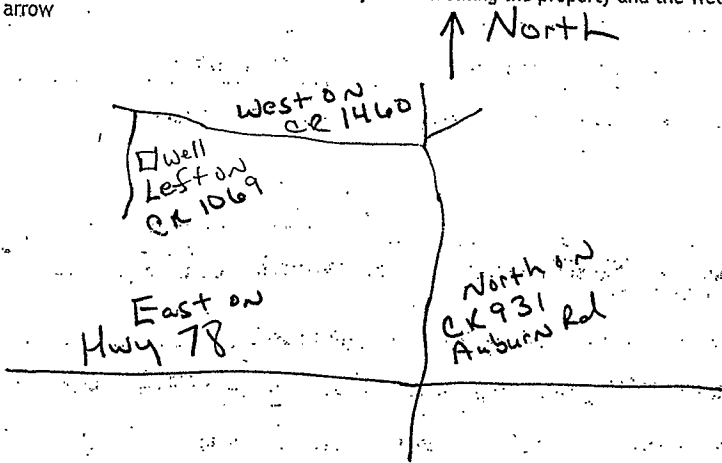 the property and the
arrow
North
West on
CR 1460
Well
Left on
CR 1069
East on
Hwy 78
North on
CR 931
Auburn Rd